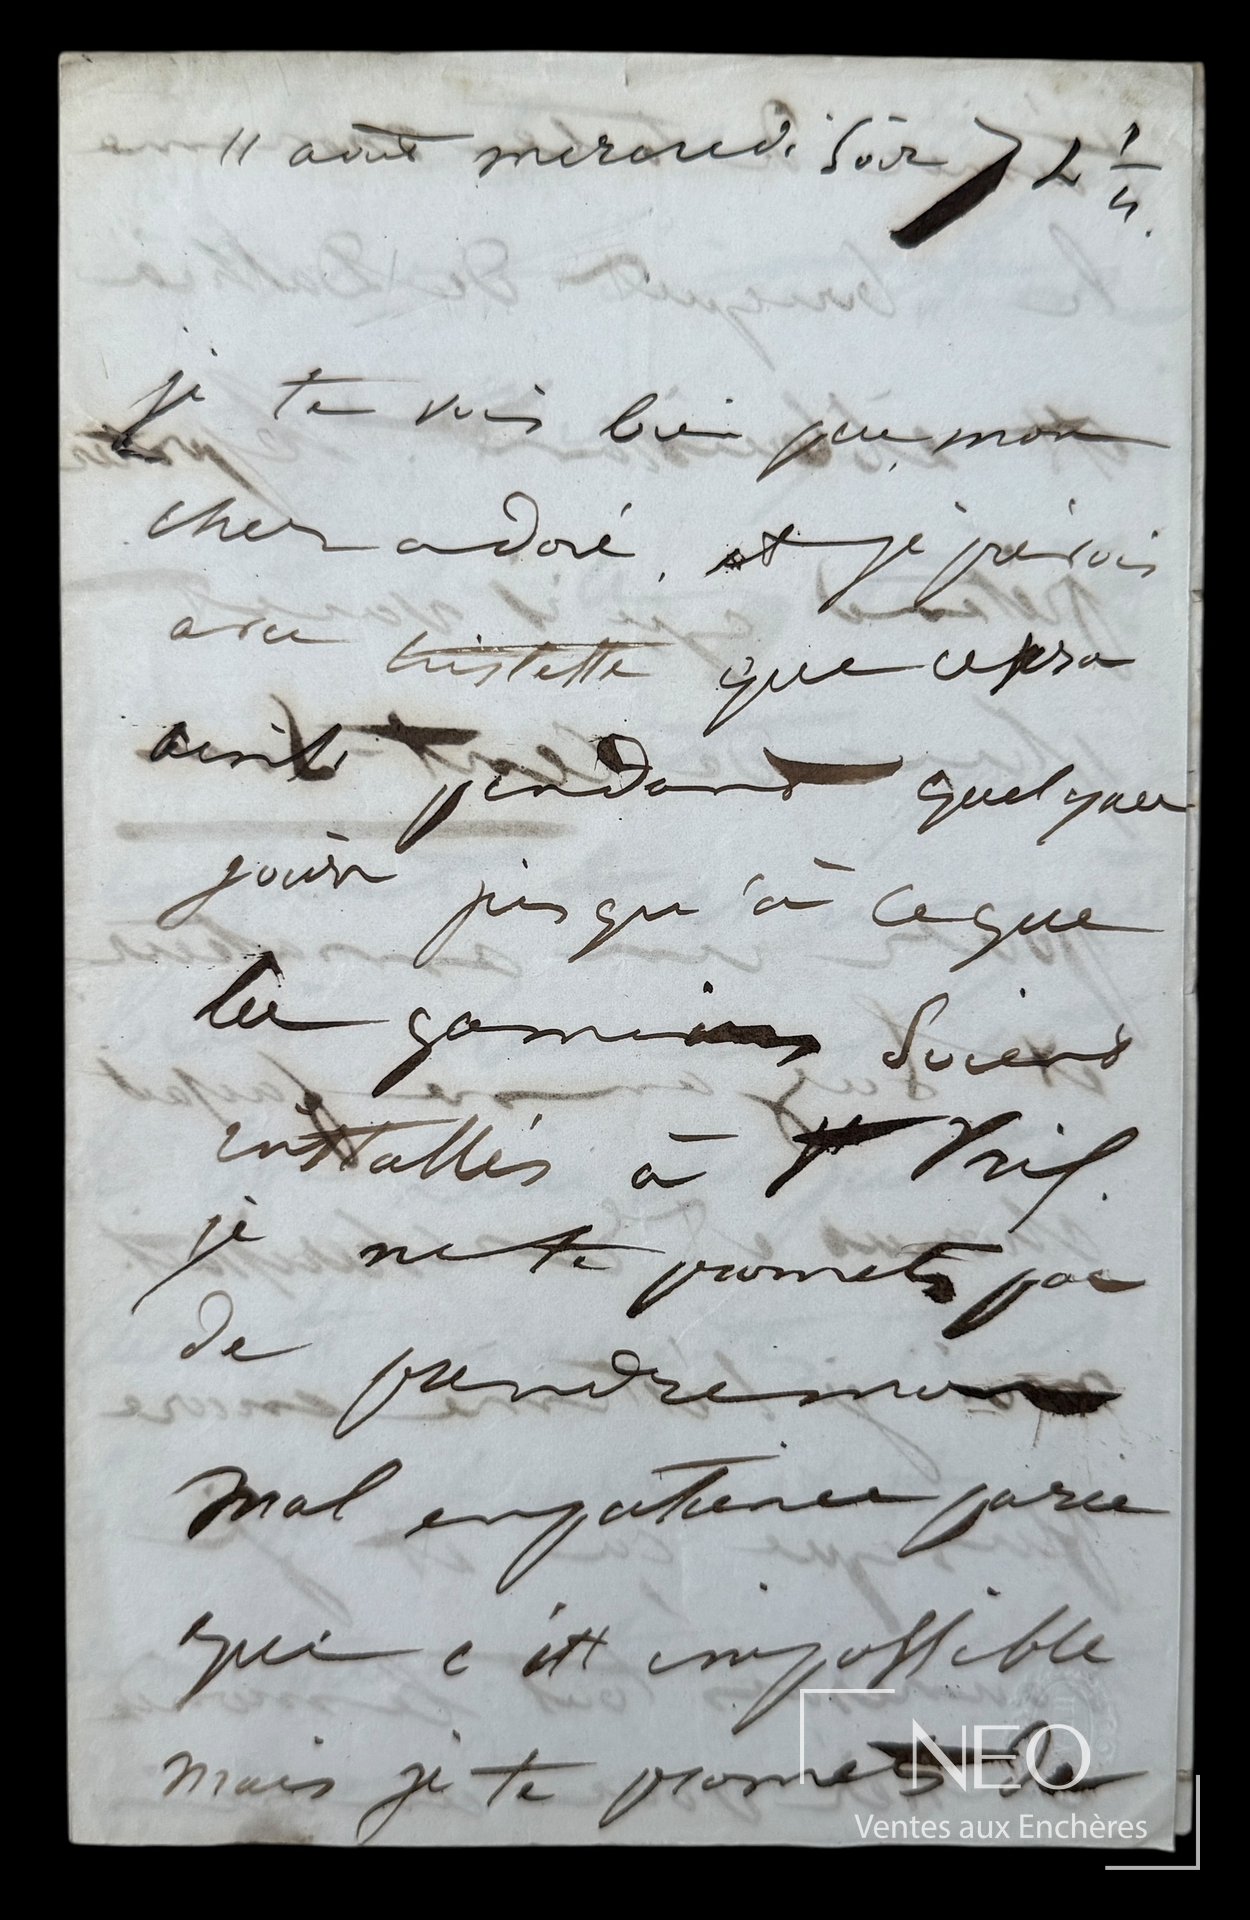 11 août mercredi soir 7 h ¼.
je te vois bien peu, mon
cher adoré, et je prévois
avec tristesse que ce sera
ainsi pendant quelques
jours jusqu'à ce que
les gamins soient
installés à
je ne te promets pas
de prendre mon
mal en patience parce
que c'est impossible
mais je te promets de
NEO
Ventes aux Enchères